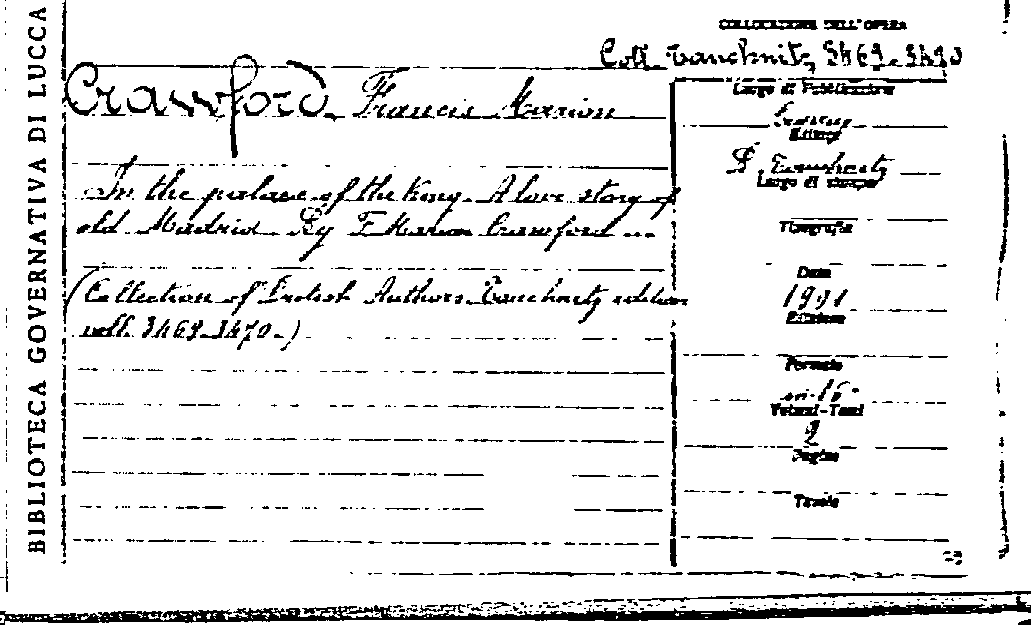 BIBLIOTECA GOVERNATIVA DI LUCCA
COLLOCAZIONE DELL'OPERA
Coll. Tauchnitz, 3469-3470
Crawford, Francis Marion
In the palace of the king. A love story of
old Madrid. By F. Marion Crawford ...
(Collection of British Authors. Tauchnitz edition
voll. 3469-3470.)
Luogo di Pubblicazione
Editore
B. Tauchnitz
Luogo di stampa
Tipografia
Data
1901
Edizione
Formato
in-16°
Volumi-Tomi
2
Pagine
Tavole